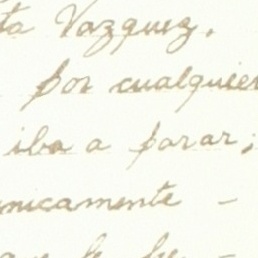 ta Vazquez.
por cualquier
iba a parar;
nicamente -